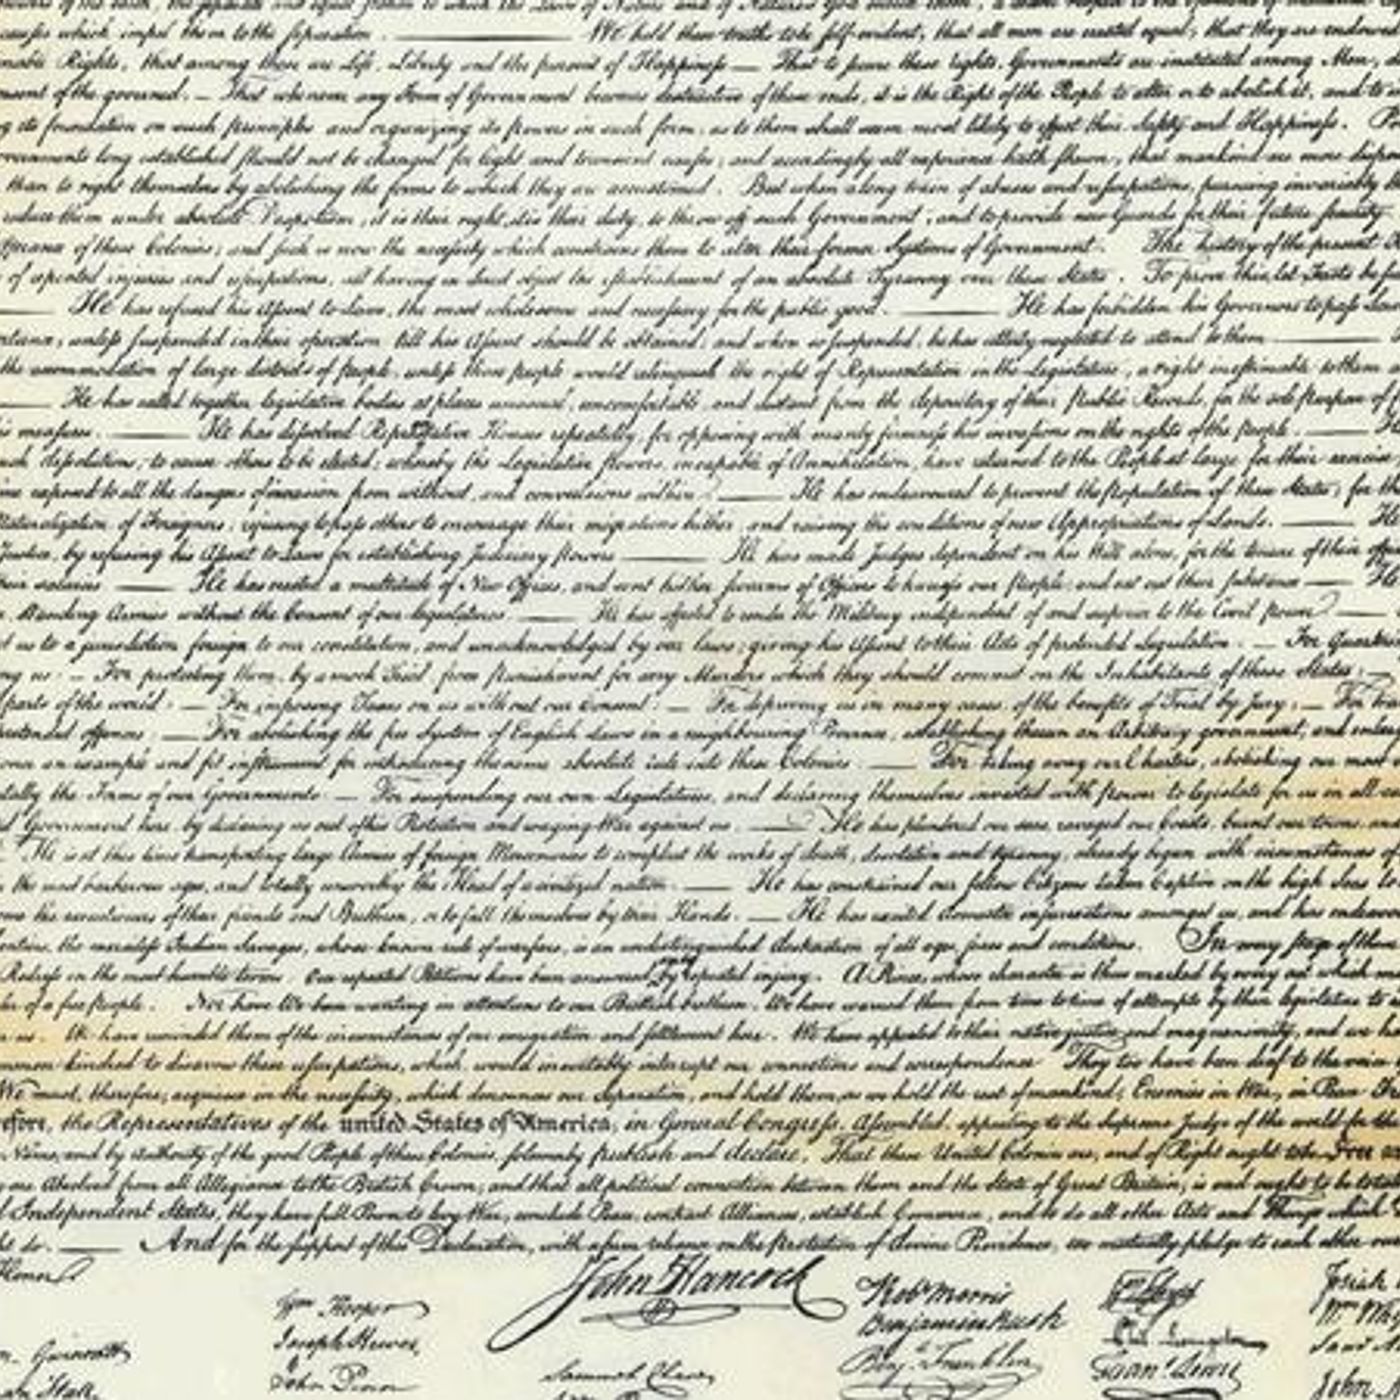 causes which impel them to the separation. — We hold these truths to be self-evident, that all men are created equal, that they are endowed
Rights, that among these are Life, Liberty and the pursuit of Happiness — That to secure these rights, Governments are instituted among Men,
of the governed. — That whenever any Form of Government becomes destructive of these ends, it is the Right of the People to alter or to abolish it, and to
its foundation on such principles and organizing its powers in such form, as to them shall seem most likely to effect their Safety and Happiness.
long established should not be changed for light and transient causes; and accordingly all experience hath shewn, that mankind are more
than to right themselves by abolishing the forms to which they are accustomed. But when a long train of abuses and usurpations, pursuing invariably
reduce them under absolute Despotism, it is their right, it is their duty, to throw off such Government, and to provide new Guards for their future security
of these Colonies; and such is now the necessity which constrains them to alter their former Systems of Government. The history of the present
of repeated injuries and usurpations, all having in direct object the establishment of an absolute Tyranny over these States. To prove this, let Facts be
— He has refused his Assent to Laws, the most wholesome and necessary for the public good. — He has forbidden his Governors to pass
unless suspended in their operation till his Assent should be obtained; and when so suspended, he has utterly neglected to attend to them —
the accommodation of large districts of people, unless those people would relinquish the right of Representation in the Legislature, a right inestimable to them
— He has called together legislative bodies at places unusual, uncomfortable, and distant from the depository of their Public Records, for the sole purpose of
measures. — He has dissolved Representative Houses repeatedly, for opposing with manly firmness his invasions on the rights of the people. —
dissolutions, to cause others to be elected; whereby the Legislative powers, incapable of Annihilation, have returned to the People at large for their exercise
exposed to all the dangers of invasion from without, and convulsions within. — He has endeavoured to prevent the population of these States; for
Naturalization of Foreigners; refusing to pass others to encourage their migrations hither, and raising the conditions of new Appropriations of Lands. —
Justice, by refusing his Assent to Laws for establishing Judiciary powers — He has made Judges dependent on his Will alone, for the tenure of their
salaries — He has erected a multitude of New Offices, and sent hither swarms of Officers to harrass our people, and eat out their substance —
Standing Armies without the Consent of our legislatures. — He has affected to render the Military independent of and superior to the Civil power. —
us to a jurisdiction foreign to our constitution, and unacknowledged by our laws; giving his Assent to their Acts of pretended Legislation: — For
us: — For protecting them, by a mock Trial, from punishment for any Murders which they should commit on the Inhabitants of these States: —
parts of the world: — For imposing Taxes on us without our Consent: — For depriving us in many cases, of the benefits of Trial by Jury: — For
offences — For abolishing the free System of English Laws in a neighbouring Province, establishing therein an Arbitrary government, and
an example and fit instrument for introducing the same absolute rule into these Colonies: — For taking away our Charters, abolishing our most
the Forms of our Governments: — For suspending our own Legislatures, and declaring themselves invested with power to legislate for us in all
Government here, by declaring us out of his Protection and waging War against us. — He has plundered our seas, ravaged our Coasts, burnt our towns,
He is at this time transporting large Armies of foreign Mercenaries to compleat the works of death, desolation and tyranny, already begun with circumstances of
the most barbarous ages, and totally unworthy the Head of a civilized nation. — He has constrained our fellow Citizens taken Captive on the high Seas to
the executioners of their friends and Brethren, or to fall themselves by their Hands. — He has excited domestic insurrections amongst us, and has
the merciless Indian Savages, whose known rule of warfare, is an undistinguished destruction of all ages, sexes and conditions. In every stage of these
Redress in the most humble terms: Our repeated Petitions have been answered by repeated injury. A Prince, whose character is thus marked by every act which
of a free People. Nor have We been wanting in attentions to our Brittish brethren. We have warned them from time to time of attempts by their legislature to
us. We have reminded them of the circumstances of our emigration and settlement here. We have appealed to their native justice and magnanimity, and we
kindred to disavow these usurpations, which, would inevitably interrupt our connections and correspondence They too have been deaf to the voice
We must, therefore, acquiesce in the necessity, which denounces our Separation, and hold them, as we hold the rest of mankind, Enemies in War, in Peace
the Representatives of the united States of America, in General Congress, Assembled, appealing to the Supreme Judge of the world for the
Name, and by Authority of the good People of these Colonies, solemnly publish and declare, That these United Colonies are, and of Right ought to be Free
are Absolved from all Allegiance to the British Crown, and that all political connection between them and the State of Great Britain, is and ought to be
Independent States, they have full Power to levy War, conclude Peace, contract Alliances, establish Commerce, and to do all other Acts and Things which
do. — And for the support of this Declaration, with a firm reliance on the Protection of divine Providence, we mutually pledge to each other our
Honor
John Hancock
Wm Hooper
Joseph Hewes
John Penn
Samuel Chase
Robt Morris
Benjamin Rush
Benj. Franklin
Wm Floyd
Phil. Livingston
Josiah